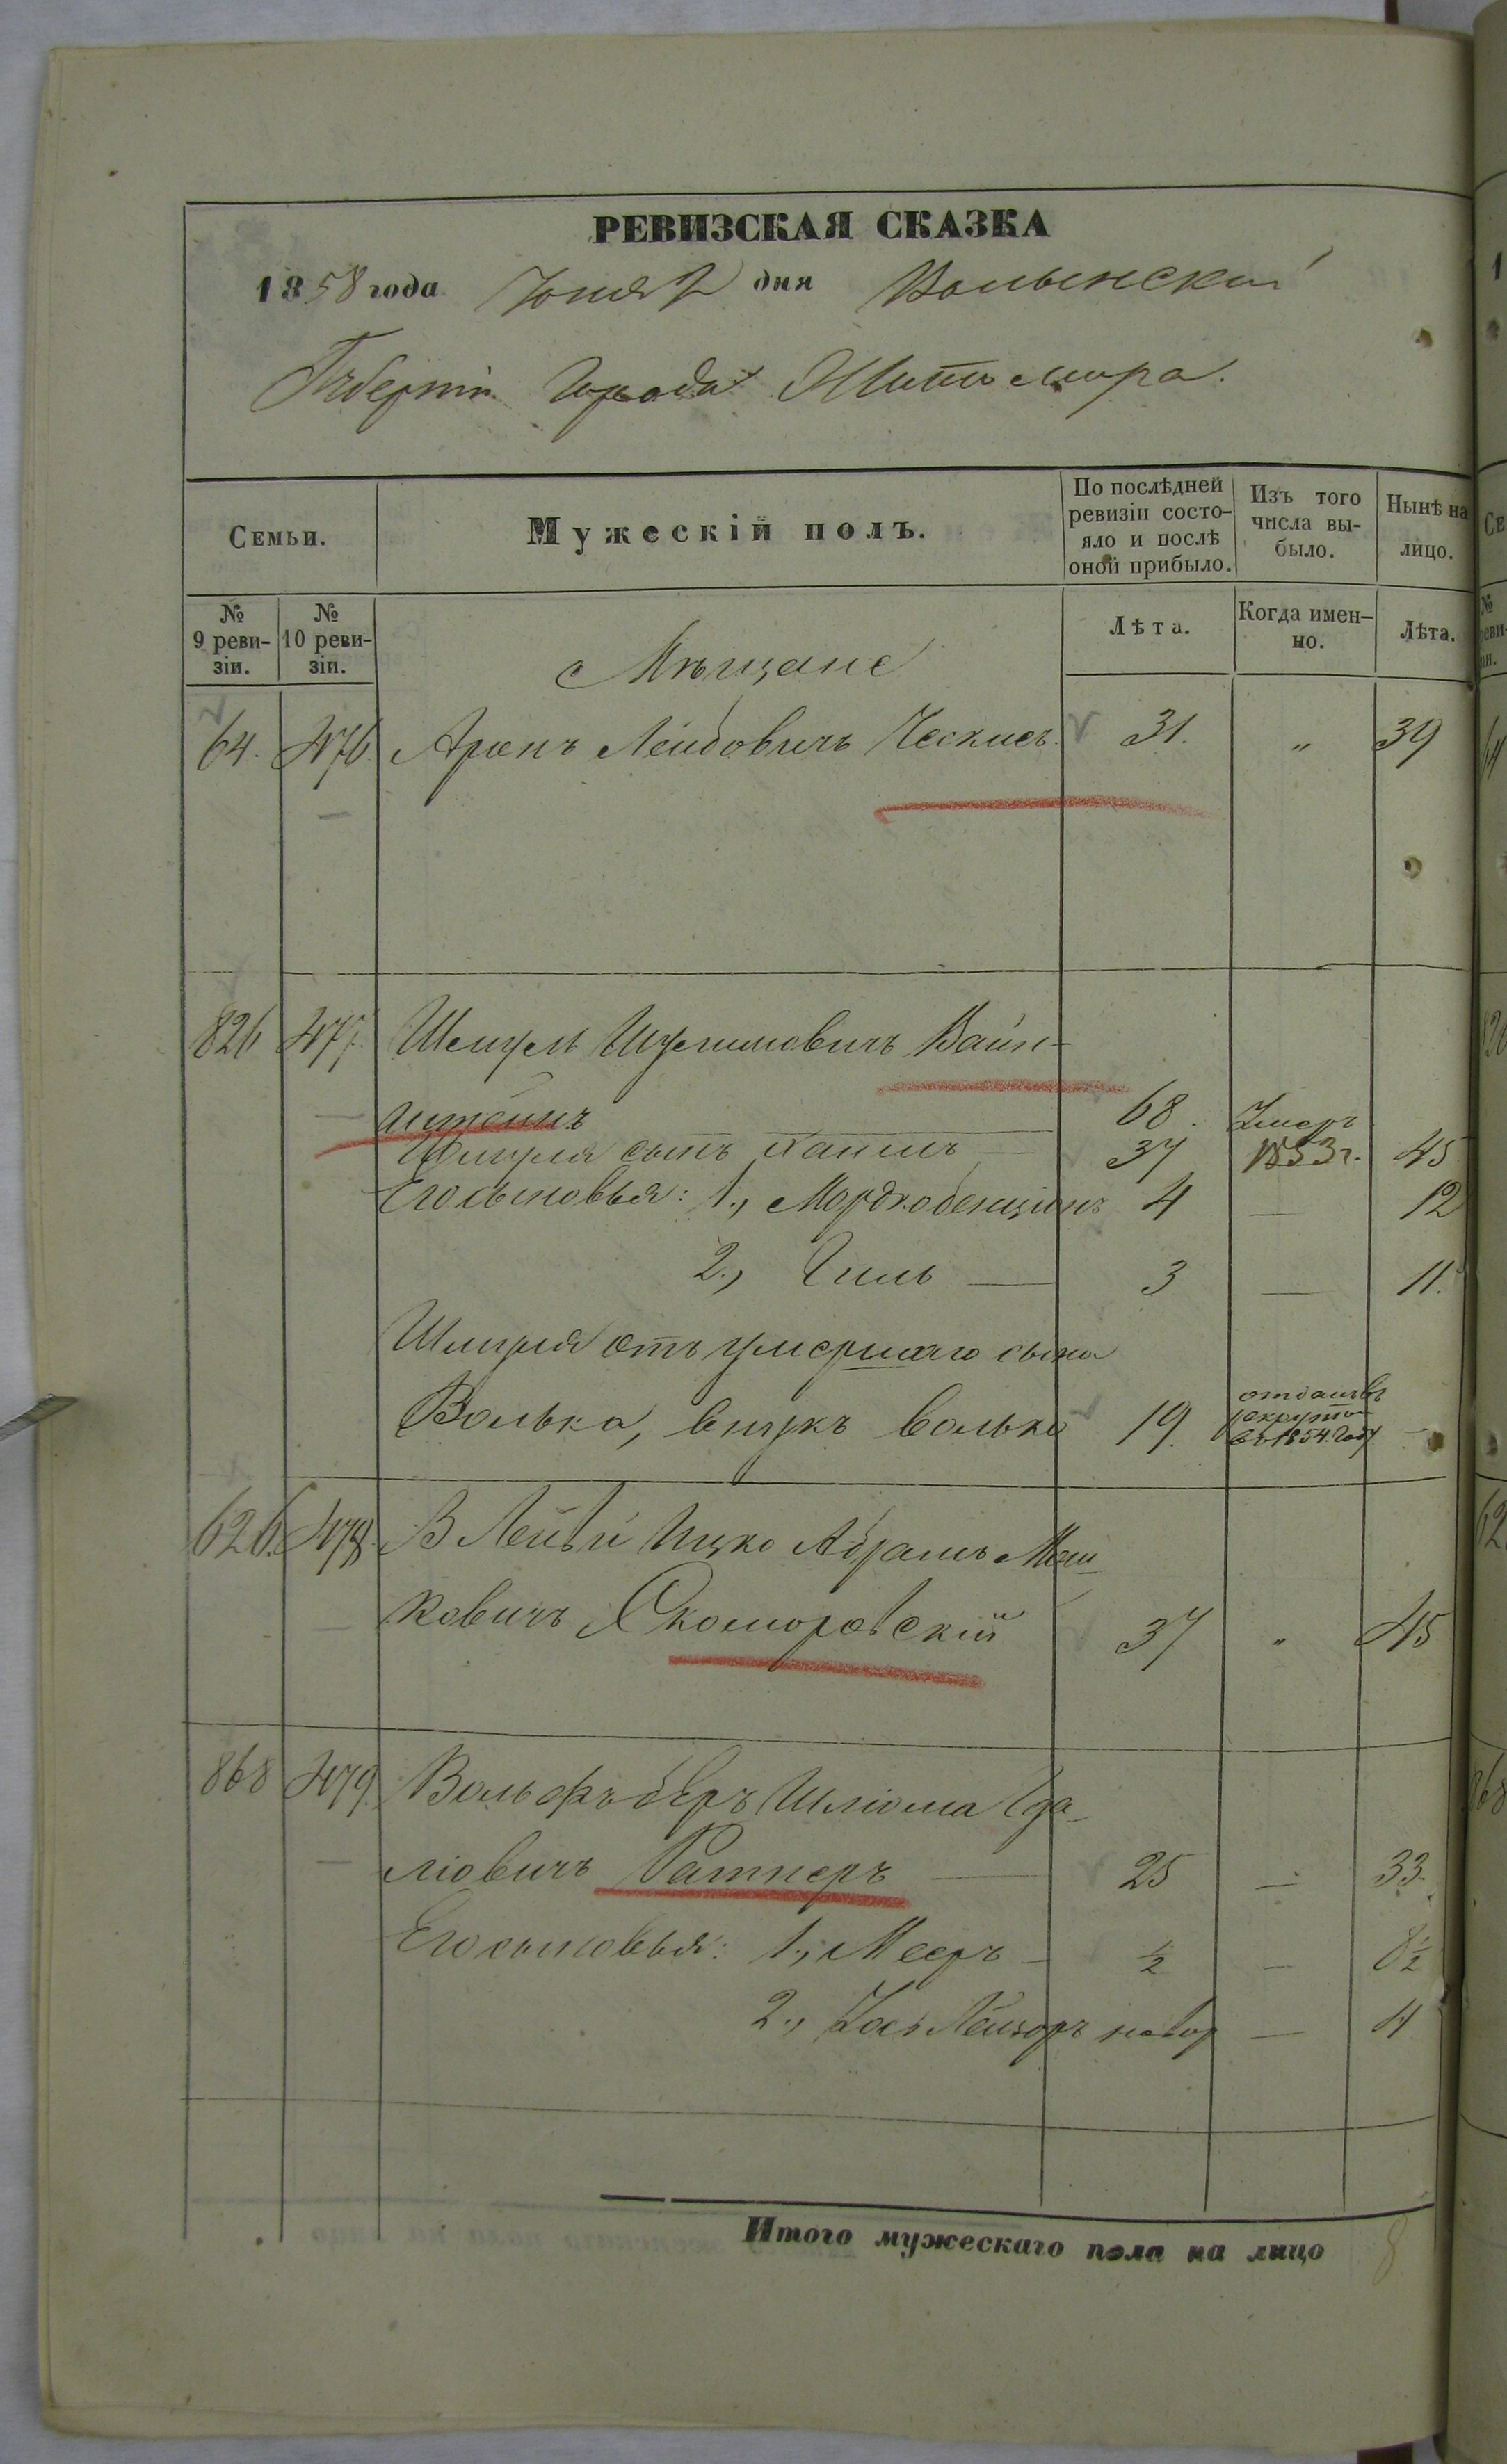 РЕВИЗСКАЯ СКАЗКА
1858 года Іюня 2 дня Волынской
Губерніи Города Житомира.
Семьи.
Мужескій полъ.
По послѣдней ревизіи состо-
яло и послѣ оной прибыло.
Изъ того числа вы-
было.
Нынѣ на лицо.
№ 9 реви-
зіи.
№ 10 реви-
зіи.
Лѣта.
Когда имен-
но.
Лѣта.
Мѣщане
64. 476. Аронъ Лейбовичъ 31. " 39
826 477. Шмуль Шулимовичъ Вайн-
штейнъ 68. Умеръ 1853 г.
Шмуля сынъ 37 45
Его сыновья: 1., Мордкобенціонъ 4 — 12
2., Хиль — 3 — 11.
Шмуля отъ умершаго сына
Волька, внукъ Волько 19. отданъ въ рекруты въ 1854 году —
626. 478. Ицко Абрамъ Мош-
ковичъ Скоморовскій 37 " 45
868 479. Вольфъ Беръ Шліома Еда-
ліовичъ Ратнеръ — 25 — 33.
Его сыновья: 1., Мееръ — ½ — 8½
2., Лейзоръ новор — 4
Итого мужескаго пола на лицо 8